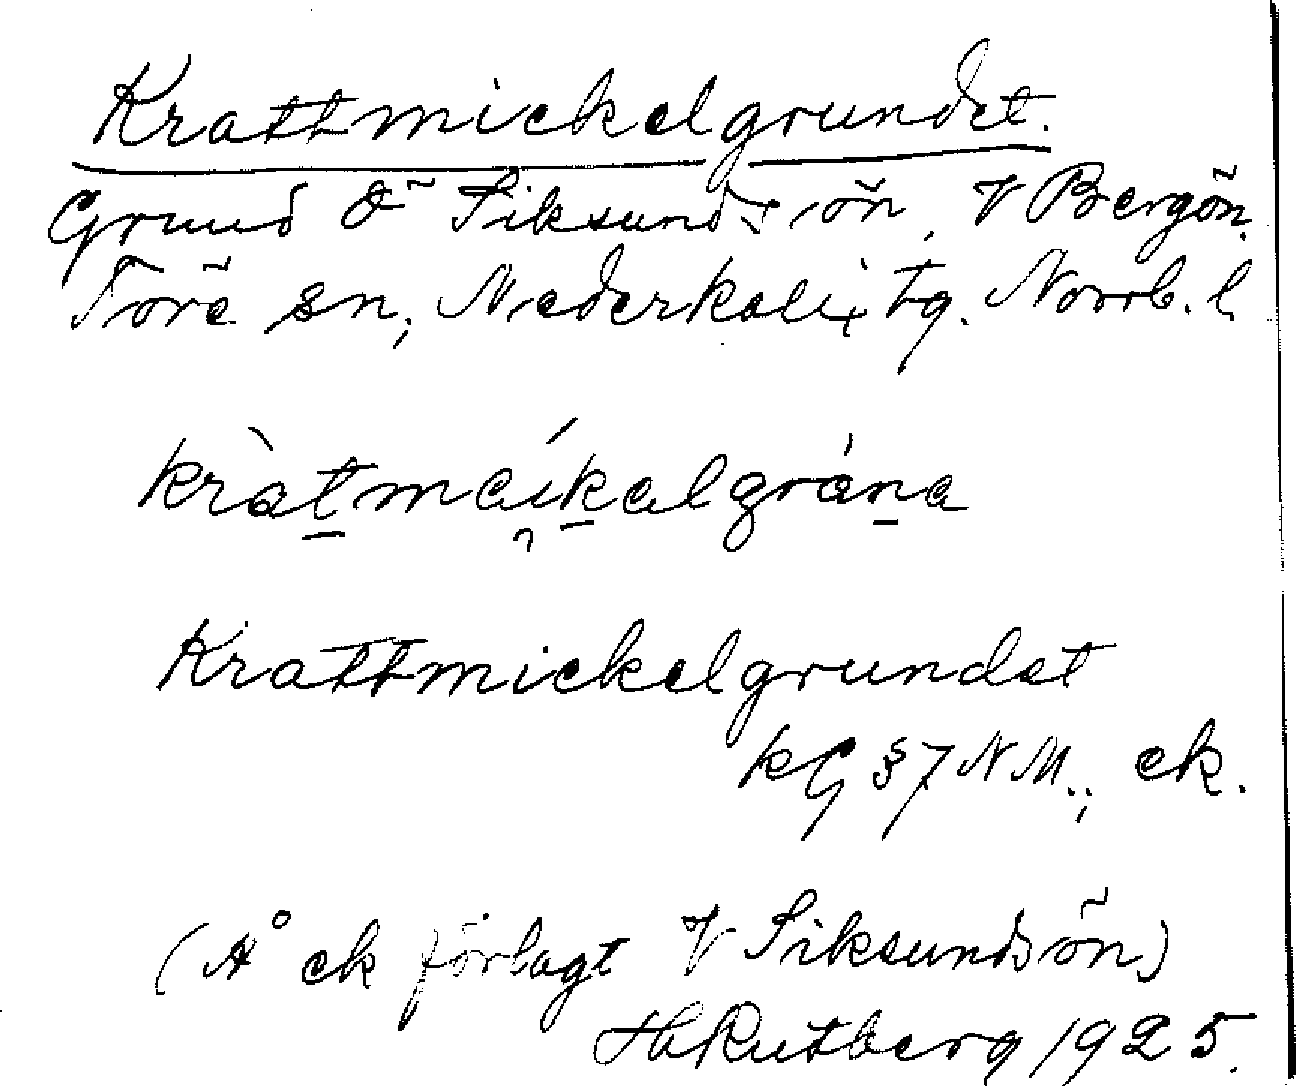 Krattmickelgrundet.
Grund Ö Siksundsön, V Bergön.
Töre sn, Nederkalix tg. Norrb. l.
kràt̲maík̲algrán̲a
Krattmickelgrundet
kG §7 NM., ek.
(Å ek förlagt V Siksundsön)
H Rutberg 1925.